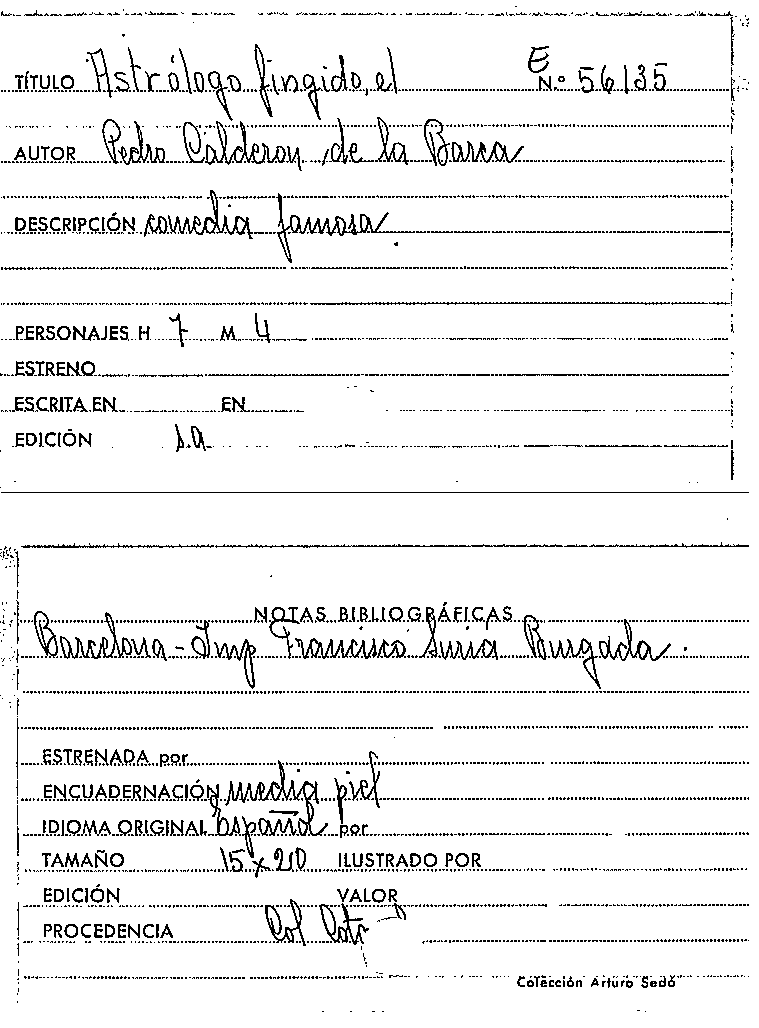 TÍTULO Astrólogo fingido, el E N.º 56135
AUTOR Pedro Calderon de la Barca
DESCRIPCIÓN comedia famosa.
PERSONAJES H 7 M 4
ESTRENO
ESCRITA EN EN
EDICIÓN s.a.
NOTAS BIBLIOGRÁFICAS
Barcelona - Imp Francisco Suriá Burgada.
ESTRENADA por
ENCUADERNACIÓN media piel
IDIOMA ORIGINAL Español por
TAMAÑO 15 x 20 ILUSTRADO POR
EDICIÓN VALOR
PROCEDENCIA Col
Colección Arturo Sedó